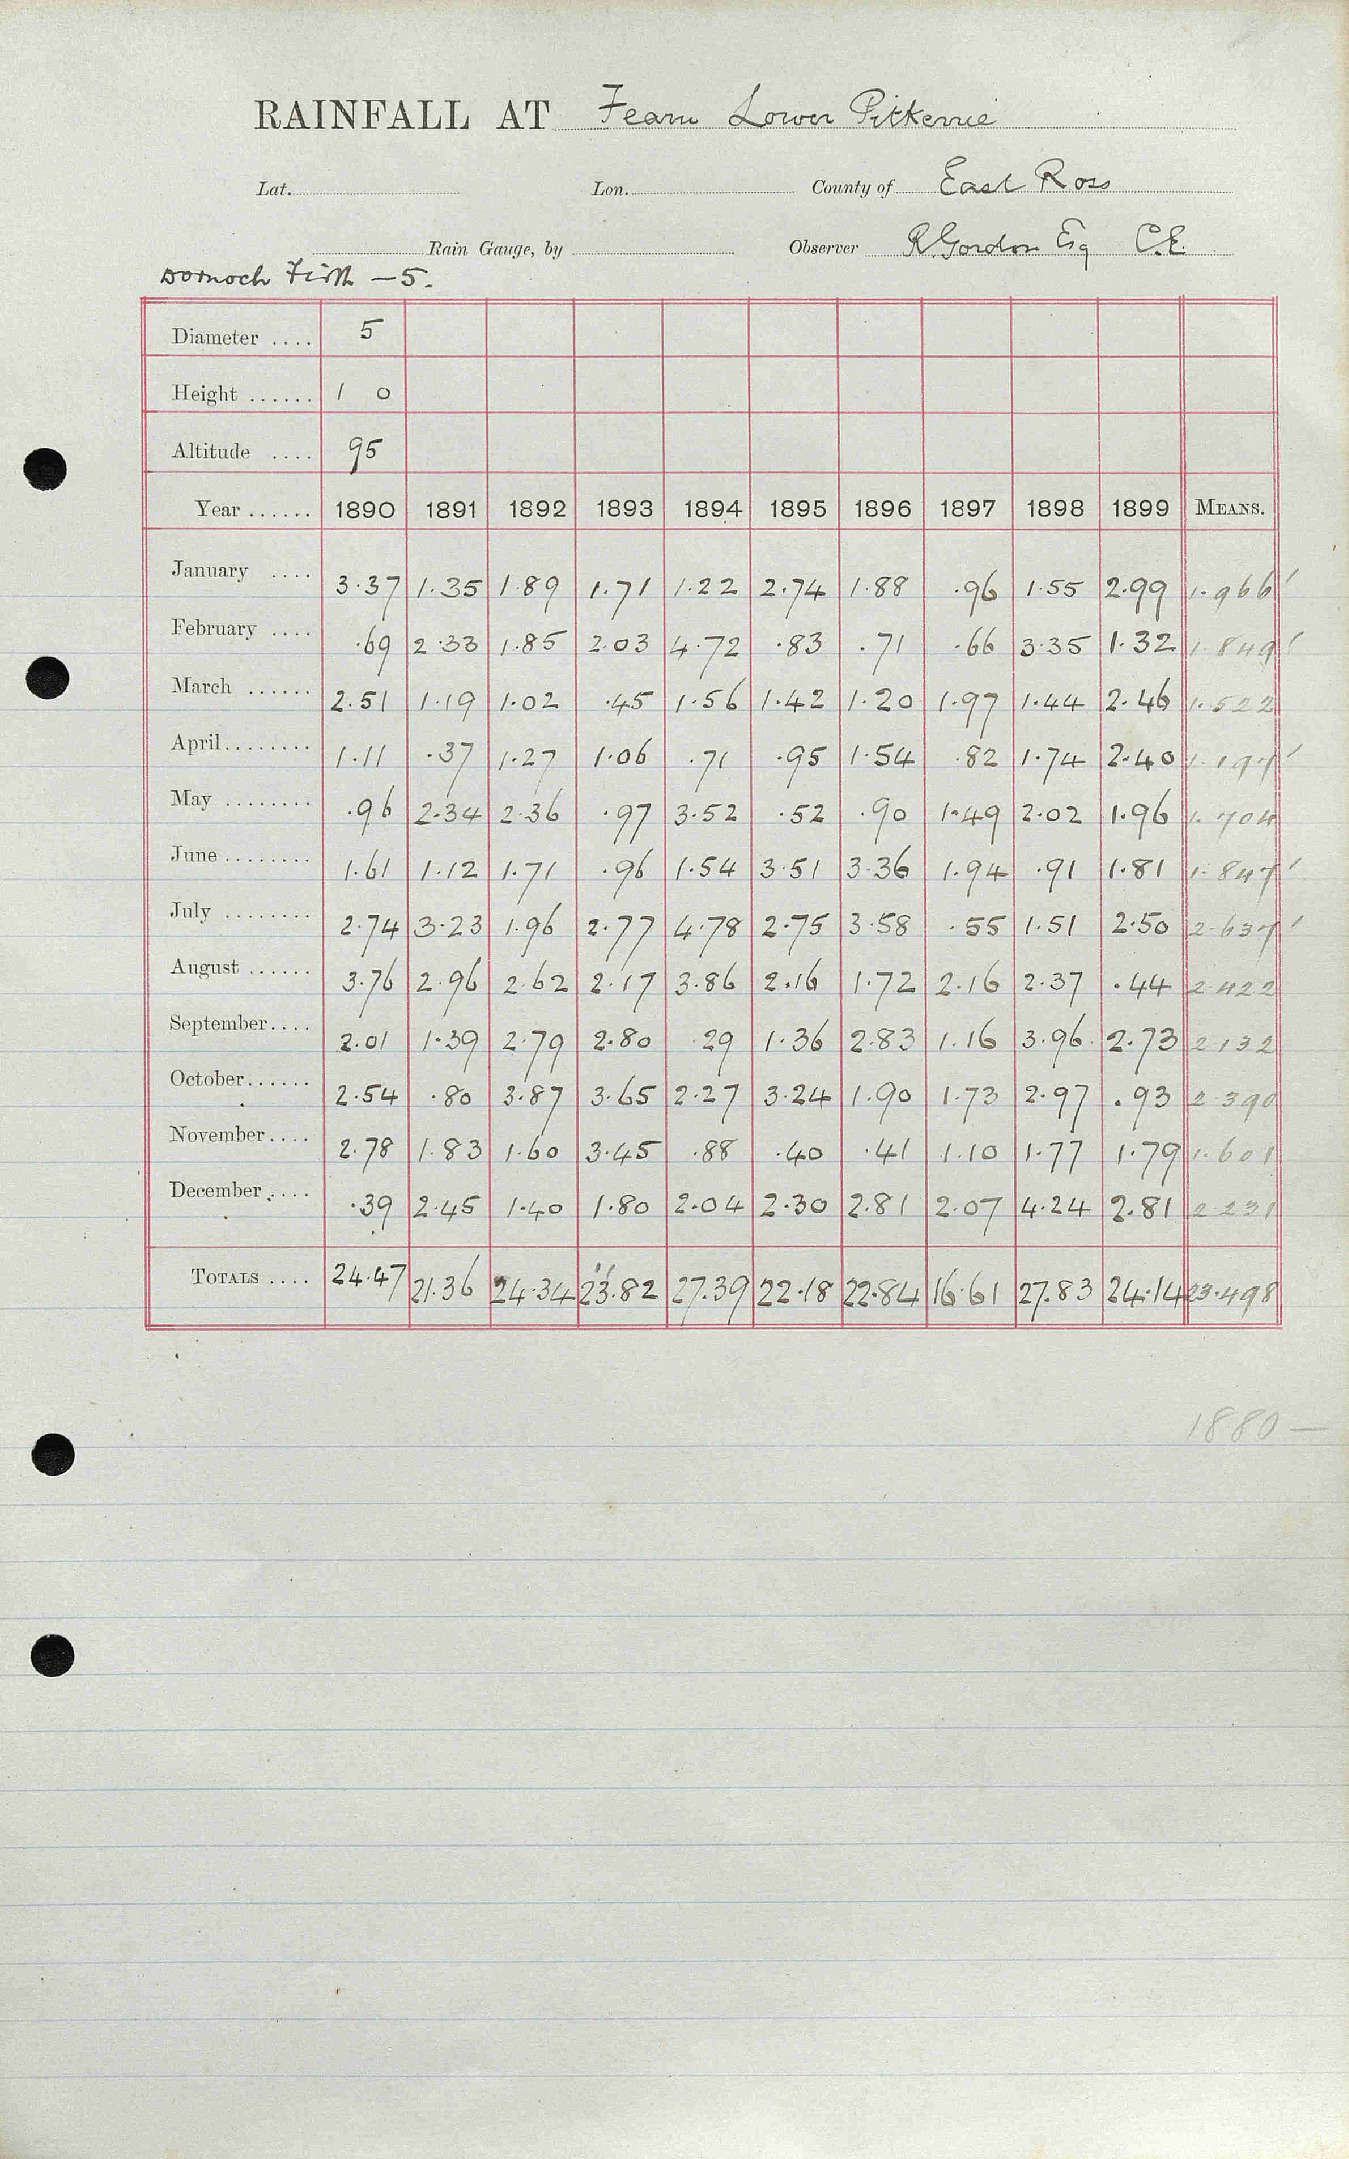 RAINFALL AT Fearn Lower Pitkerrie
Lat. Lon. County of East Ross
Rain Gauge, by Observer R Gordon Esq C.E.
Dornoch Firth - 5.
Diameter .... 5
Height ...... 1 0
Altitude .... 95
Year ...... 1890 1891 1892 1893 1894 1895 1896 1897 1898 1899 MEANS.
January .... 3.37 1.35 1.89 1.71 1.22 2.74 1.88 .96 1.55 2.99 1.966
February .... .69 2.33 1.85 2.03 4.72 .83 .71 .66 3.35 1.32 1.849
March ...... 2.51 1.19 1.02 .45 1.56 1.42 1.20 1.97 1.44 2.46 1.522
April........ 1.11 .37 1.27 1.06 .71 .95 1.54 .82 1.74 2.40 1.197
May ........ .96 2.34 2.36 .97 3.52 .52 .90 1.49 2.02 1.96 1.704
June ........ 1.61 1.12 1.71 .96 1.54 3.51 3.36 1.94 .91 1.81 1.847
July ........ 2.74 3.23 1.96 2.77 4.78 2.75 3.58 .55 1.51 2.50 2.637
August ...... 3.76 2.96 2.62 2.17 3.86 2.16 1.72 2.16 2.37 .44 2.422
September.... 2.01 1.39 2.79 2.80 .29 1.36 2.83 1.16 3.96 2.73 2.132
October...... 2.54 .80 3.87 3.65 2.27 3.24 1.90 1.73 2.97 .93 2.390
November.... 2.78 1.83 1.60 3.45 .88 .40 .41 1.10 1.77 1.79 1.601
December.... .39 2.45 1.40 1.80 2.04 2.30 2.81 2.07 4.24 2.81 2.231
TOTALS .... 24.47 21.36 24.34 23.82 27.39 22.18 22.84 16.61 27.83 24.14 23.498
1880 —